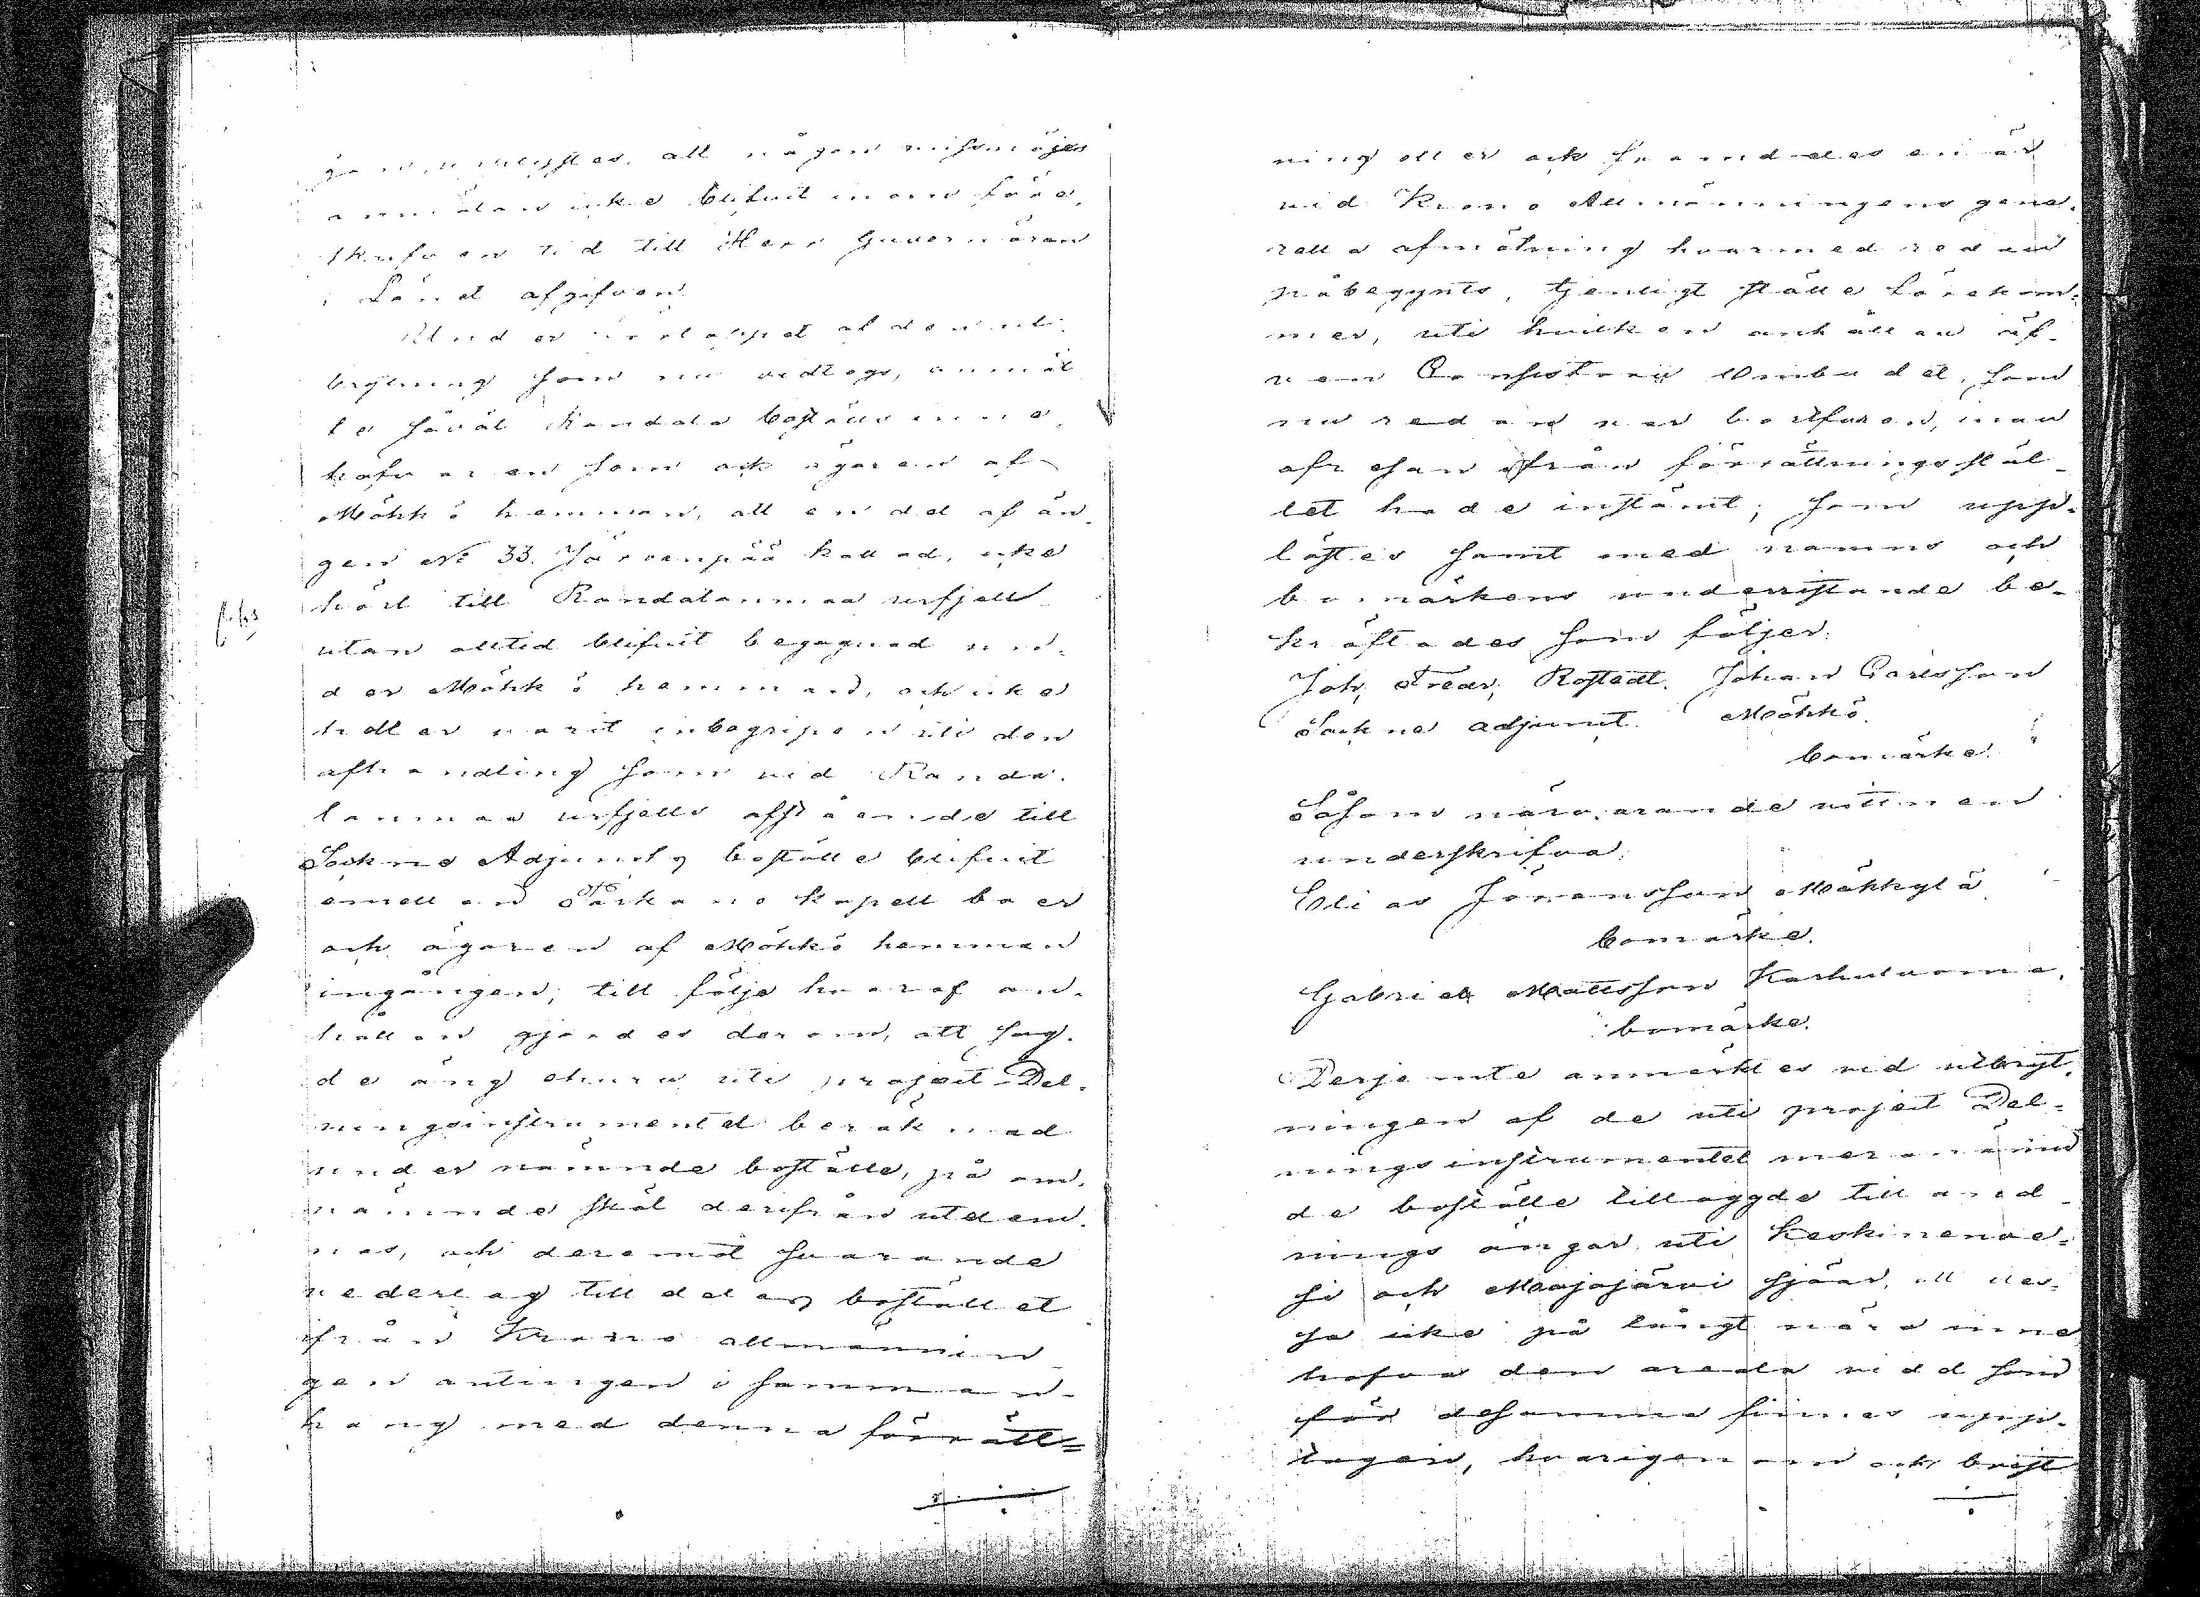 att någon missnöjes
anmälan icke blifvit inom före
skrifven tid till Herr Guvernören
i Länet afgifven.
Under förloppet af den ut-
brytning som nu vidtogs, anmäl
te såväl Kandala boställs inne
hafvaren som ock ägaren af
Möhkö hemman, att en del af än-
gen No 33. Järvenpää kallad, icke
hört till Randalanmaa urfjell
utan alltid blifvit begagnad un-
der Möhkö hemman, och icke
heller varit inbegripen uti den
afhandling som vid Randa-
lanmaa urfjells afstående till
Sockne Adjuncts boställe blifvit
emellan Parkano kapell boer
och ägaren af Möhkö hemman
ingången; till följe hvaraf an-
hållan gjordes derom, att sag-
de äng ehuru uti project Del-
ningsinstrumentet beräknad
under nämnde boställe, på om-
nämnde skäl derifrån utläm-
nas, och deremot svarande
vederlag tilldelas bostället
ifrån Krono allmännin-
gen antingen i samman-
hang med denna förrätt=
ning eller ock framdeles när
vid Krono Allmänningens gene-
rella afmätning hvarmed redan
påbegynts, tjenligt ställe förekom-
mer, uti hvilken anhållan äf-
ven Consistorii Ombudet, som
nu redan var bortfaren, innan
afresan ifrån förrättningsstäl-
let hade instämt; som upp-
lästes samt med namns och
bomärkens underristande be-
kräftades som följer:
Joh, Fredr, Rostedt. Johan Carlsson
Sockne adjunct. Möhkö.
bomärke.
Såsom närvarande vittnen
underskrifva;
Elias Jöransson Mäkkylä
bomärke.
Gabriel Mattsson Karhuluoma,
bomärke.
Derjemte anmärktes vid utbryt-
ningen af de uti project Del-
nings instrumentet meranämn
de boställe tillaggde till and-
nings ängar uti Keskinenve-
si och Majajärvi sjöar, att des-
sa icke på långt nära inne
hafva den areala vidd som
för desamma finnes upp-
tagen, hvarigenom ock brist